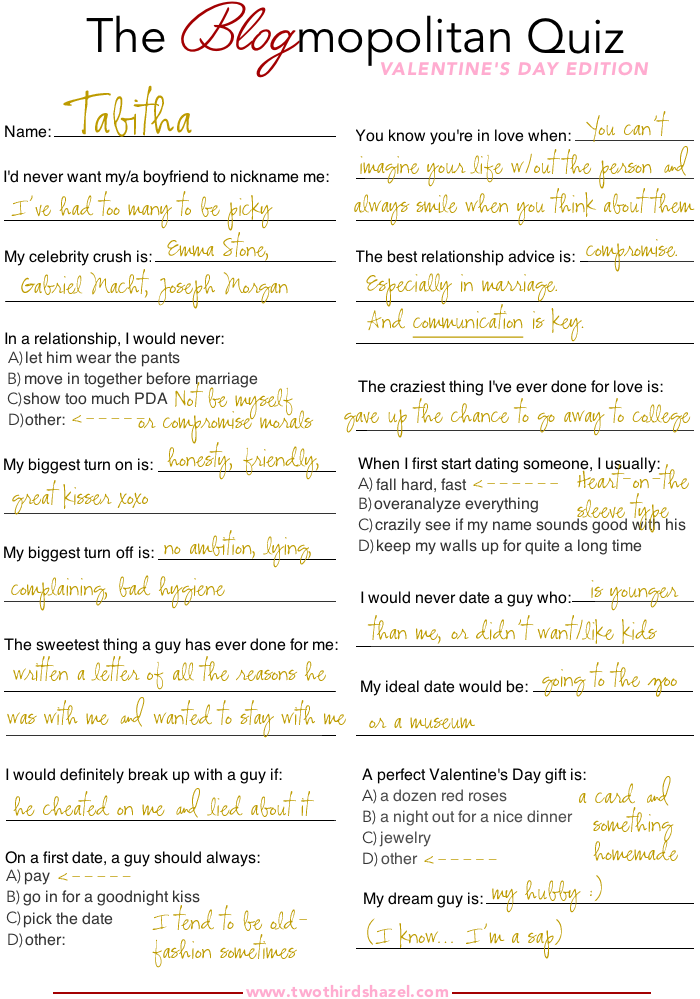 The Blogmopolitan Quiz
VALENTINE'S DAY EDITION
Name: Tabitha
I'd never want my/a boyfriend to nickname me:
I've had too many to be picky
My celebrity crush is: Emma Stone,
Gabriel Macht, Joseph Morgan
In a relationship, I would never:
A) let him wear the pants
B) move in together before marriage
C) show too much PDA Not be myself
D) other: <----- or compromise morals
My biggest turn on is: honesty, friendly,
great kisser xoxo
My biggest turn off is: no ambition, lying,
complaining, bad hygiene
The sweetest thing a guy has ever done for me:
written a letter of all the reasons he
was with me and wanted to stay with me
I would definitely break up with a guy if:
he cheated on me and lied about it
On a first date, a guy should always:
A) pay <-----
B) go in for a goodnight kiss
C) pick the date
D) other:
I tend to be old-
fashion sometimes
You know you're in love when: You can't
imagine your life w/out the person and
always smile when you think about them
The best relationship advice is: compromise.
Especially in marriage.
And communication is key.
The craziest thing I've ever done for love is:
gave up the chance to go away to college
When I first start dating someone, I usually:
A) fall hard, fast <------ Heart-on-the
B) overanalyze everything sleeve type
C) crazily see if my name sounds good with his
D) keep my walls up for quite a long time
I would never date a guy who: is younger
than me, or didn't want/like kids
My ideal date would be: going to the zoo
or a museum
A perfect Valentine's Day gift is:
A) a dozen red roses a card and
B) a night out for a nice dinner something
C) jewelry homemade
D) other <-----
My dream guy is: my hubby :)
(I know... I'm a sap)
www.twothirdshazel.com